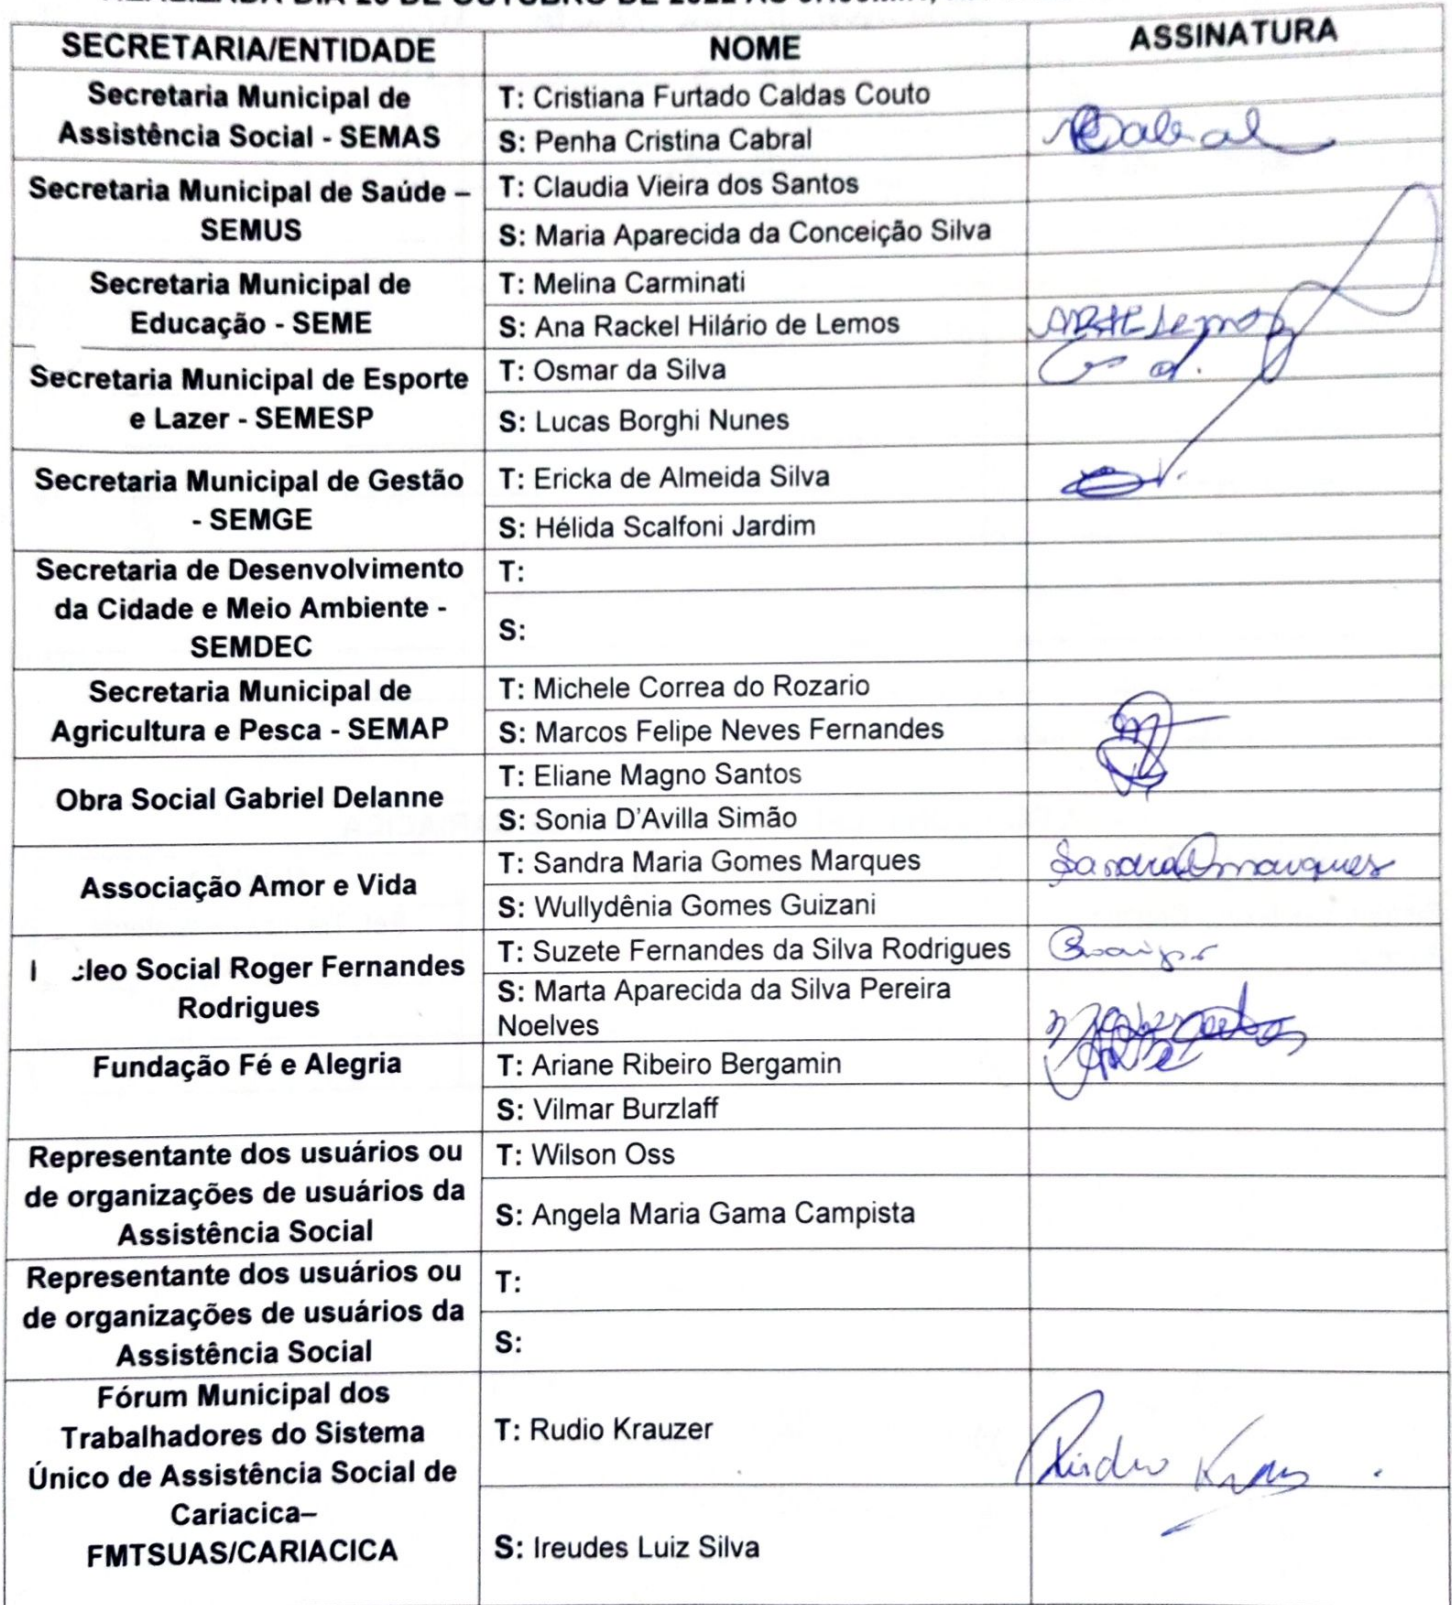 SECRETARIA/ENTIDADE NOME ASSINATURA
Secretaria Municipal de
Assistência Social - SEMAS
T: Cristiana Furtado Caldas Couto
S: Penha Cristina Cabral
Cabral
Secretaria Municipal de Saúde –
SEMUS
T: Claudia Vieira dos Santos
S: Maria Aparecida da Conceição Silva
Secretaria Municipal de
Educação - SEME
T: Melina Carminati
S: Ana Rackel Hilário de Lemos
Lemos
Secretaria Municipal de Esporte
e Lazer - SEMESP
T: Osmar da Silva
S: Lucas Borghi Nunes
Secretaria Municipal de Gestão
- SEMGE
T: Ericka de Almeida Silva
S: Hélida Scalfoni Jardim
Secretaria de Desenvolvimento
da Cidade e Meio Ambiente -
SEMDEC
T:
S:
Secretaria Municipal de
Agricultura e Pesca - SEMAP
T: Michele Correa do Rozario
S: Marcos Felipe Neves Fernandes
Obra Social Gabriel Delanne
T: Eliane Magno Santos
S: Sonia D'Avilla Simão
Associação Amor e Vida
T: Sandra Maria Gomes Marques
Sandra Marques
S: Wullydênia Gomes Guizani
Social Roger Fernandes
Rodrigues
T: Suzete Fernandes da Silva Rodrigues
S: Marta Aparecida da Silva Pereira
Noelves
Fundação Fé e Alegria
T: Ariane Ribeiro Bergamin
S: Vilmar Burzlaff
Representante dos usuários ou
de organizações de usuários da
Assistência Social
T: Wilson Oss
S: Angela Maria Gama Campista
Representante dos usuários ou
de organizações de usuários da
Assistência Social
T:
S:
Fórum Municipal dos
Trabalhadores do Sistema
Único de Assistência Social de
Cariacica–
FMTSUAS/CARIACICA
T: Rudio Krauzer
S: Ireudes Luiz Silva